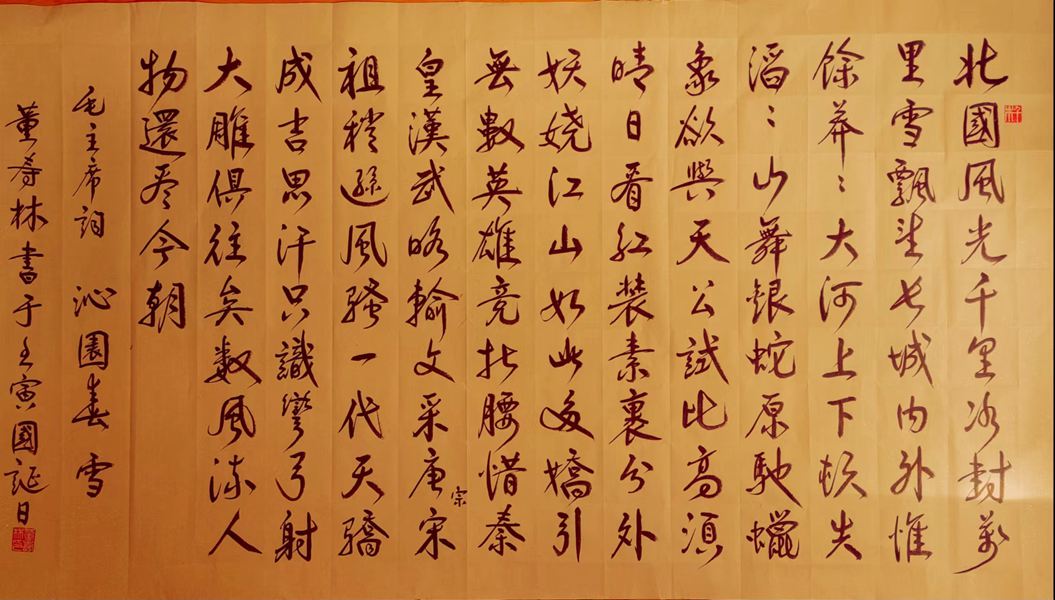 北國風光千里冰封萬
里雪飄望长城內外惟
餘莽〻大河上下頓失
滔〻山舞銀蛇原馳蠟
象欲與天公試比高須
晴日看紅裝素裹分外
妖嬈江山如此多嬌引
無數英雄竞折腰惜秦
皇漢武略輸文采唐宗宋
祖稍遜風騷一代天驕
成吉思汗只識彎弓射
大雕俱往矣数風流人
物還看今朝
毛主席詞 沁園春 雪
董寿林書于壬寅國誕日